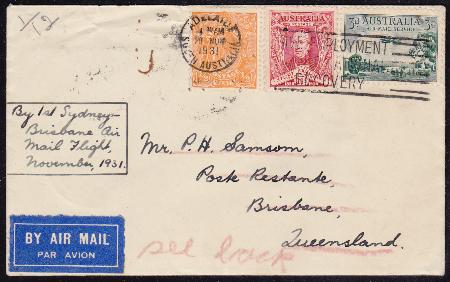 1/2
ADELAIDE
NOV
1931
STH AUSTRALIA
AUSTRALIA
3d AIR MAIL SERVICE 3d
EMPLOYMENT
By 1st Sydney-
Brisbane Air
Mail Flight,
November, 1931.
Mr. P. H. Samsom,
Poste Restante,
Brisbane,
Queensland.
BY AIR MAIL
PAR AVION
see back